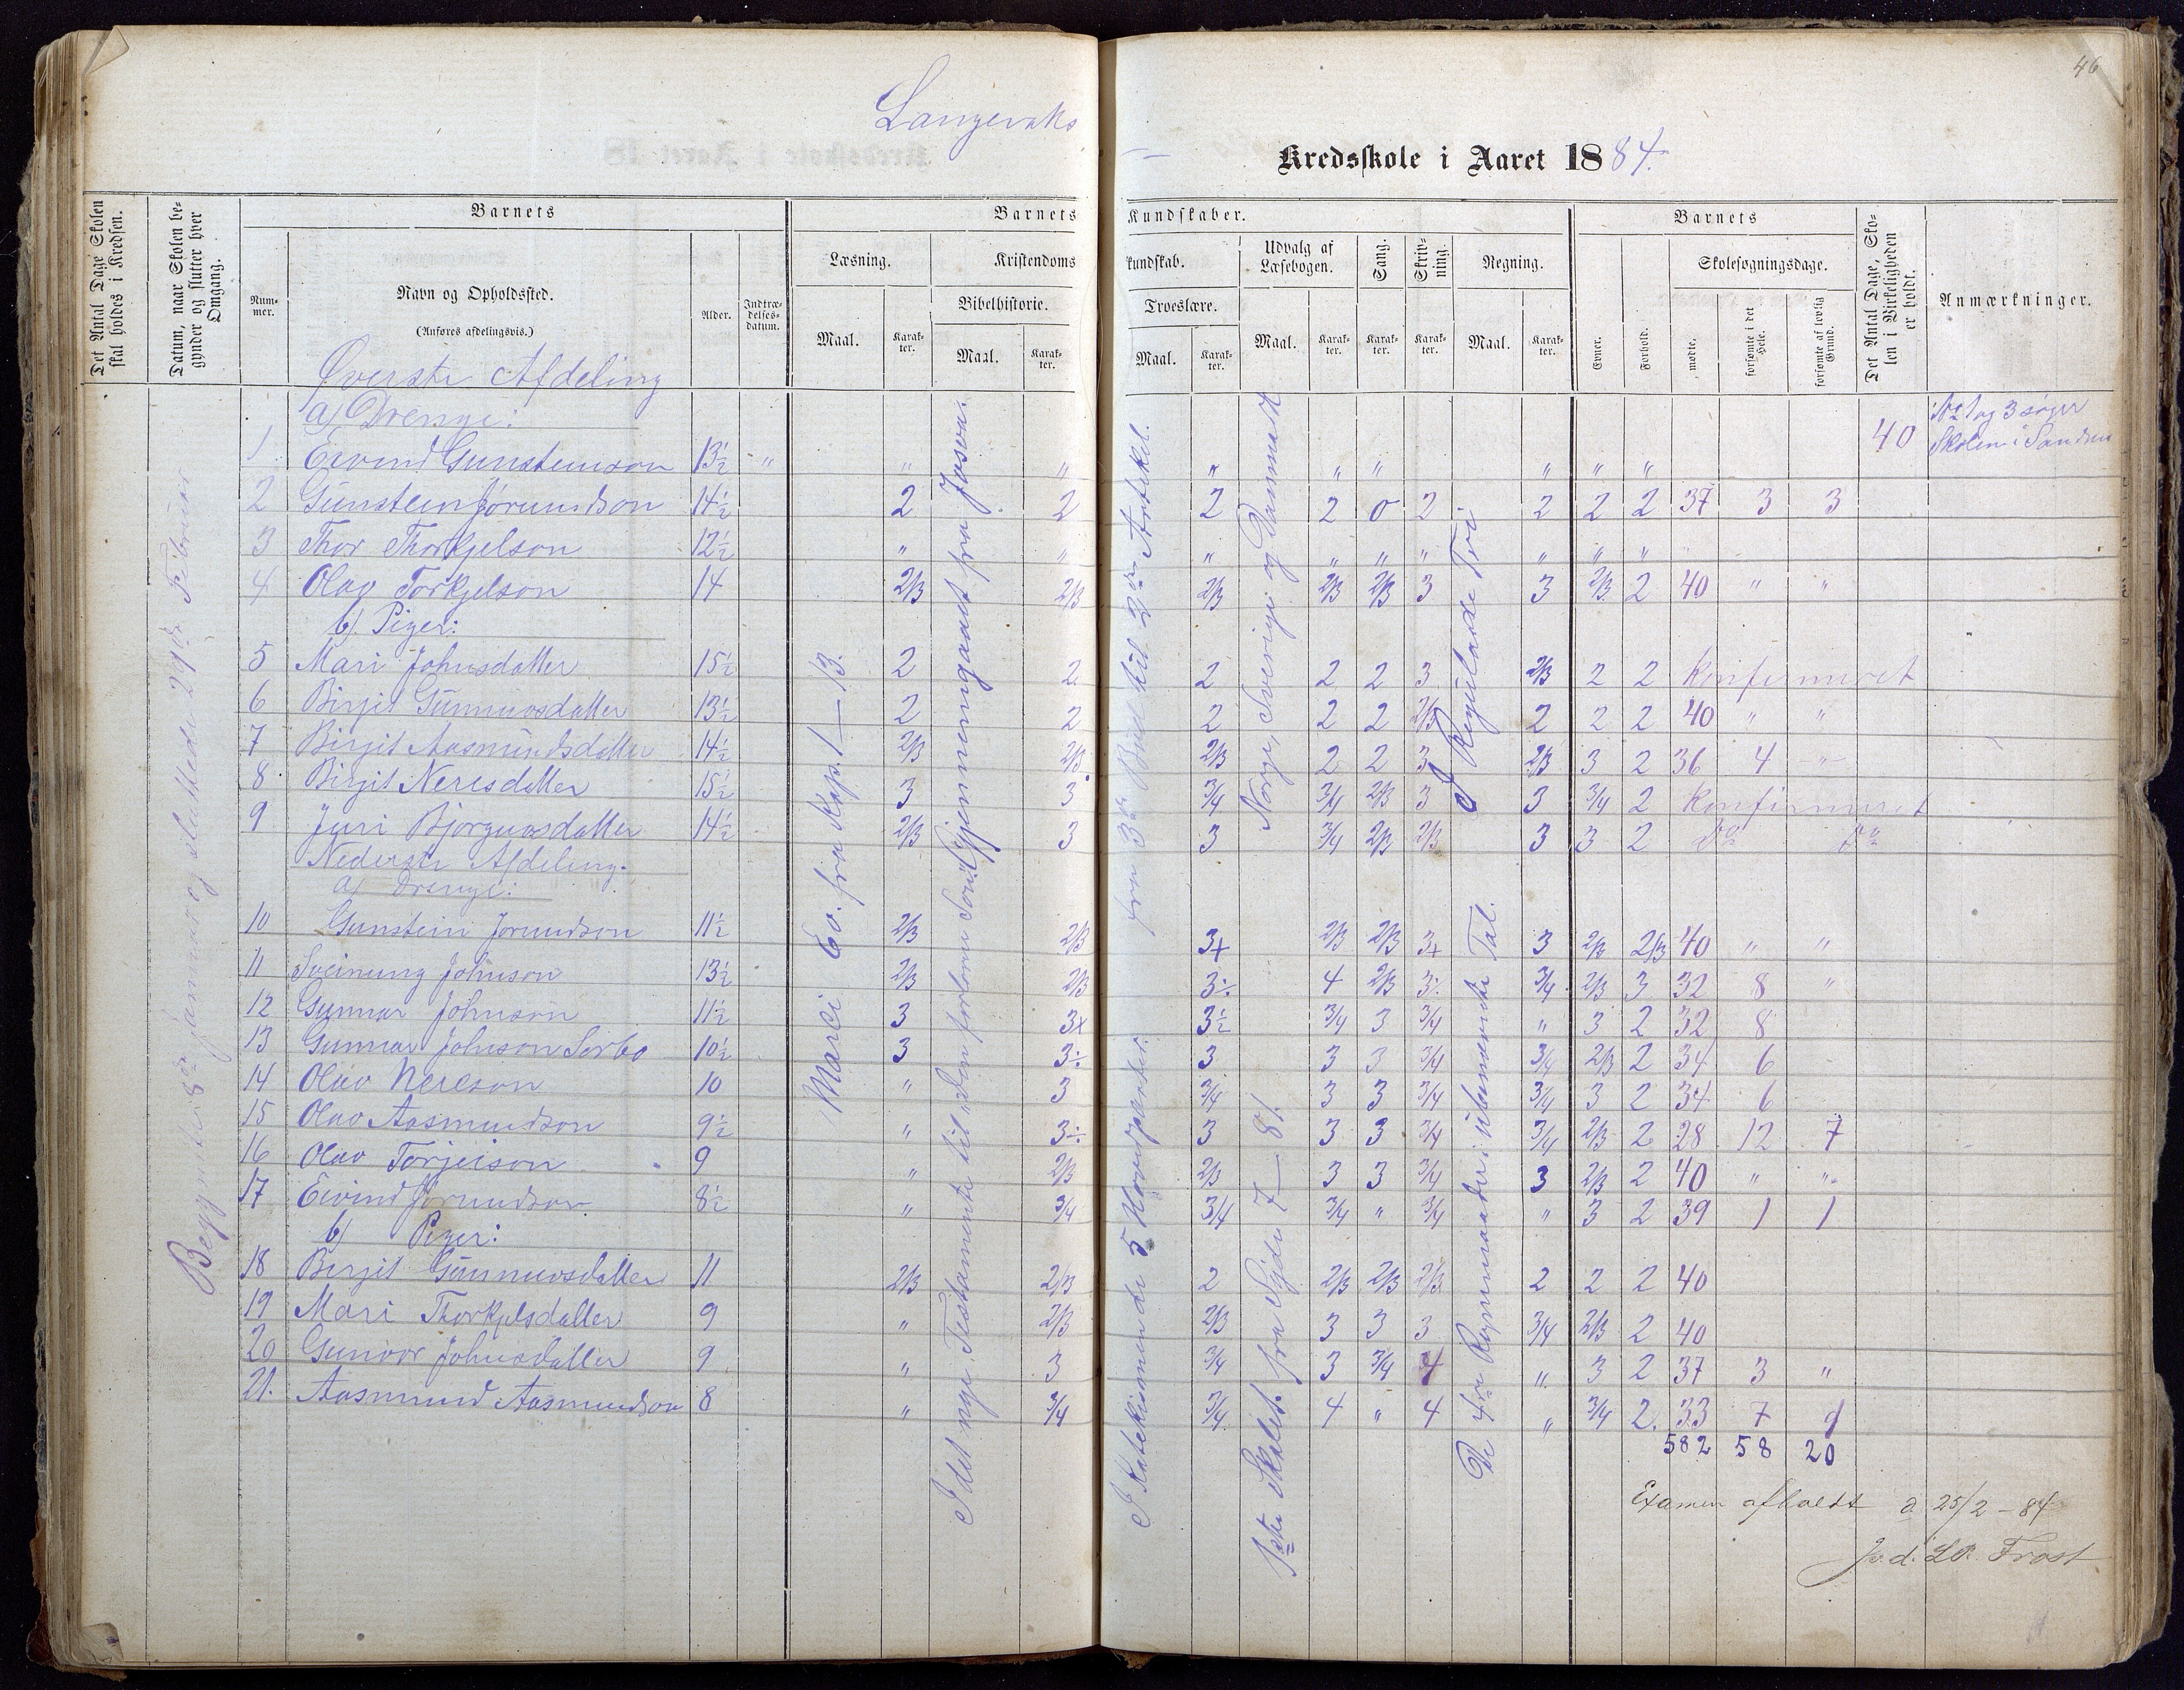 46
Langeraks
Kredsskole i Aaret 1884.
Det Antal Dage Skolen skal holdes i Kredsen.
Datum, naar Skolen begynder og slutter hver Omgang.
Barnets
Nummer.
Navn og Opholdssted.
(Anføres afdelingsvis.)
Alder.
Indtrædelses-datum.
Barnets Kundskaber.
Læsning.
Maal.
Karakter.
Kristendomskundskab.
Bibelhistorie.
Maal.
Karakter.
Troeslære.
Maal.
Karakter.
Udvalg af Læsebogen.
Maal.
Karakter.
Sang.
Karakter.
Skrivning.
Karakter.
Regning.
Maal.
Karakter.
Barnets
Evner.
Forhold.
Skolesøgningsdage.
mødte.
forsømte i det Hele.
forsømte af lovlig Grund.
Det Antal Dage, Skolen i Virkeligheden er holdt.
Anmærkninger.
Begyndte 8de Januar og sluttede 29de Februar
Marci Ev. fra Kap. 1 – 13.
I det nye Testamente til "Den forlorne Søn". Gjennemgaaet fra Josva.
I Katekismen de 5 Hovedparter. fra 3die Bud til 2den Artikel.
1ste Skolet. fra Side 7 – 81. Norge, Sverige og Danmark
De 4re Regnemaader i ubenævnte Tal. I Regulade Tri
Øverste Afdeling
a) Drenge:
40 No 1 og 3 søger Skolen i Sandnes
1 Eivind Gunsteinson 13½ " " " " " " " " "
2 Gunstein Jørundson 14½ 2 2 2 2 0 2 2 2 2 37 3 3
3 Thor Thorkjelson 12½ " " " " " " " " "
4 Olav Torkjelson 14 2/3 2/3 2/3 2/3 2/3 3 3 2/3 2 40 " "
b) Piger:
5 Mari Johnsdatter 15½ 2 2 2 2 2 3 2/3 2 2 Konfirmeret
6 Birgit Gunnuvsdatter 13½ 2 2 2 2 2 2/3 2 2 2 40 " "
7 Birgit Aasmundsdatter 14½ 2/3 2/3 2/3 2 2 3 2/3 3 2 36 4 "
8 Birgit Neresdatter 15½ 3 3 3/4 3/4 2/3 3 3 3/4 2 Konfirmeret
9 Juri Bjørguvsdatter 14½ 2/3 3 3 3/4 2/3 2/3 3 3 2 Do Do
Nederste Afdeling.
a) Drenge:
10 Gunstein Jørundson 11½ 2/3 2/3 3+ 2/3 2/3 3+ 3 2/3 2/3 40 " "
11 Sveinung Johnson 13½ 2/3 2/3 3÷ 4 2/3 3÷ 3/4 2/3 3 32 8 "
12 Gunnar Johnson 11½ 3 3+ 3½ 3/4 3 3/4 " 3 2 32 8
13 Gunnar Johnson Sorbø 10½ 3 3÷ 3 3 3 3/4 3/4 2/3 2 34 6
14 Olav Nereson 10 " 3 3/4 3 3 3/4 3/4 3 2 34 6
15 Olav Aasmundson 9½ " 3÷ 3 3 3 3/4 3/4 2/3 2 28 12 7
16 Olav Torjeison 9 " 2/3 2/3 3 3 3/4 3 2/3 2 40 " "
17 Eivind Jørundson 8½ " 3/4 3/4 3/4 " 3/4 " 3 2 39 1 1
b) Piger:
18 Bergit Gunnuvsdatter 11 2/3 2/3 2 2/3 2/3 2/3 2 2 2 40
19 Mari Thorkjelsdatter 9 " 2/3 2/3 3 3 3 3/4 2/3 2 40
20 Gunvor Johnsdatter 9 " 3 3/4 3 3/4 4 " 3 2 37 3 "
21. Aasmund Aasmundson 8 " 3/4 3/4 4 " 4 " 3/4 2. 33 7 9
582 58 20
Examen afholdt d 25/2 – 84
Frost